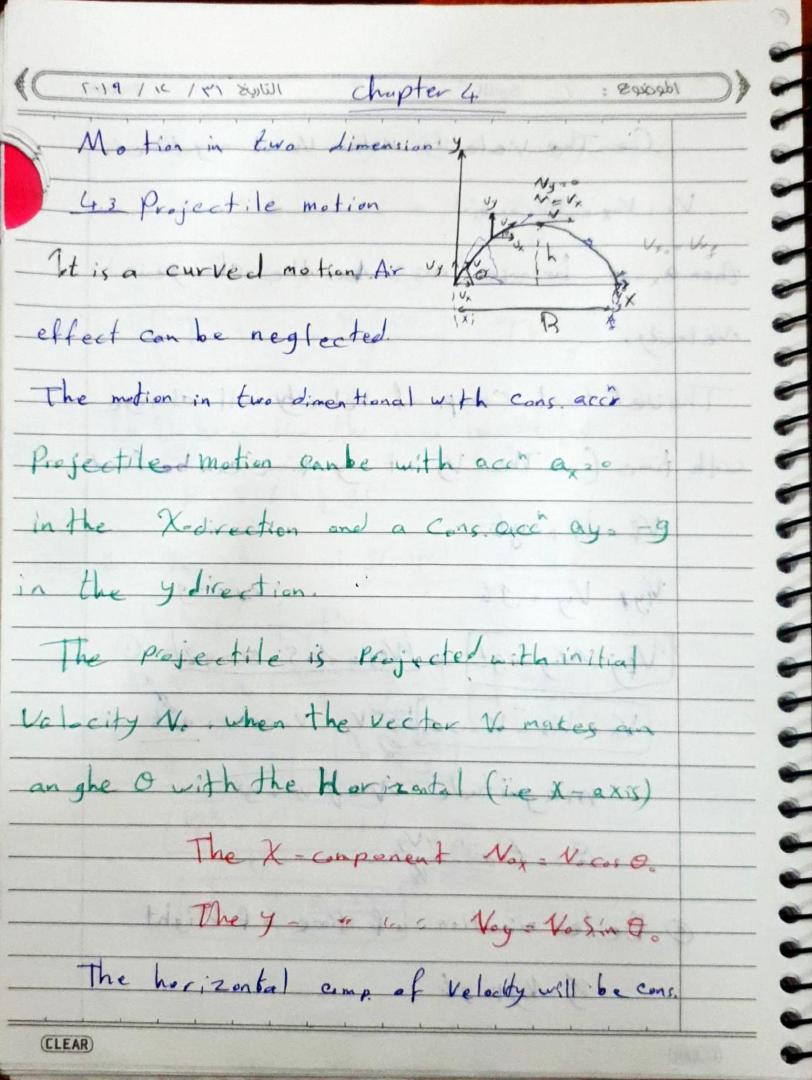 الموضوع :
chapter 4
التاريخ ٣١ / ١٢ / ٢٠١٩
Motion in two dimension
4.3 Projectile motion
It is a curved motion, Air
effect can be neglected.
y
Vy=0
V=Vx
Vy
Vx
h
Vy
θ
Vx
R
X
The motion in two dimentional with cons. accⁿ
Projectiled motion can be with accⁿ ax=0
in the X-direction and a Cons. accⁿ ay= -g
in the y direction.
The projectile is projected with initial
Valocity V₀, when the vector V₀ makes an
anghe θ with the Horizontal (i.e X-axis)
The X-component V₀x = V₀ cos θ₀
The y - " " = V₀y = V₀ Sin θ₀
The horizontal comp. of Velocity will be cons.
CLEAR